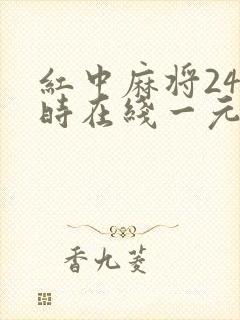 紅中麻将24
時在綫一元
香九菱